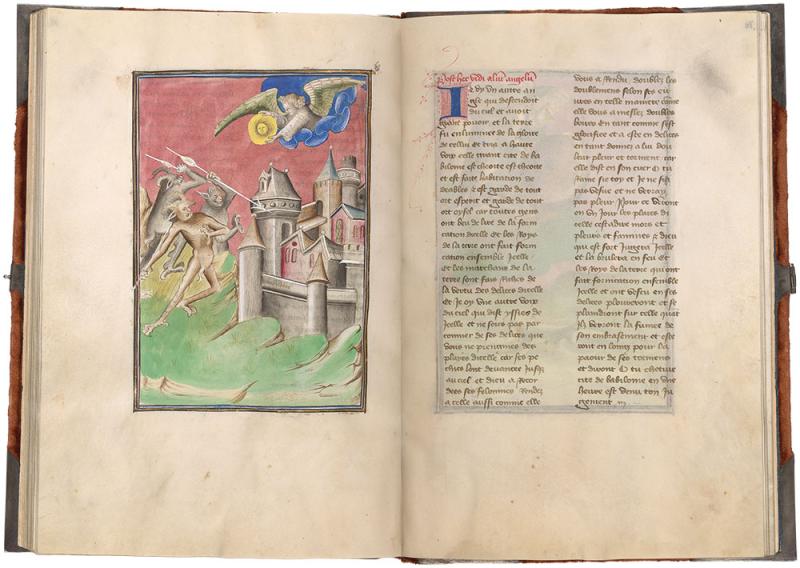 Post hec vidi aliu angelu
Ie vy vn autre an
gle qui descendoit
du ciel et auoit
grant pouoir et la terre
fu enluminee de la gloire
de cellui et cria a haulte
voix celle grant cite de ba
bilonne est cheoite est cheoite
et est faite habitation de
deables et est garde de tout
ort esperit et garde de tout
ort oysel car toutes gens
ont beu de lire de la forni
cation dicelle Et les Roys
de la terre ont fait forni
cation ensemble Icelle
Et les marchans de la
terre sont fais riches de
la vertu des delices dicelle
Et Je oy vne autre voix
du ciel qui dist yssies de
Icelle et ne soies pas par
conniers de ses delices que
vous ne prenissies des
playes dicelle car ses pe
chies sont deuantes Jusqs
au ciel et dieu a Recor
de es ses felonnies Rendez
a celle aussi comme elle
vous a Rendu doublez les
doublemens selon ses eu
ures en celle maniere comme
elle vous a meslez doublez
lui en tant comme sest
glorifiee et a este en delices
en tant donnez a lui dou
leur pleur et torment car
elle dist en son cuer
Roine sie toy et Je ne sui
pas vesue et ne verray
pas pleur Pour ce venront
en vn Jour les plaies di
celle cestadire mors et
pleurs et famines et dieu
qui est fort Jugera Icelle
et la bruslera en feu Et
les Roys de la terre qui ont
fait fornication ensemble
Icelle et ont vescu en ses
delices ploureront et se
plaindront sur celle quant
Ilz verront la fumee de
son embrasement et este
ront en loings pour la
paour de ses tormens
et diront O tu chetiue
cite de babilonne en vne
heure est venu ton Ju
gement